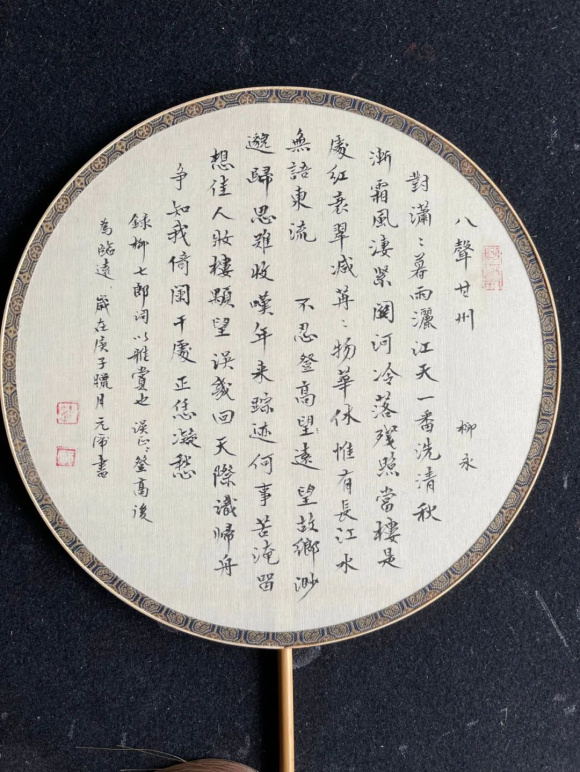 八聲甘州 柳永
對瀟〻暮雨灑江天一番洗清秋
漸霜風凄緊關河冷落殘照當樓是
處紅衰翠减苒〻物華休惟有長江水
無語東流 不忍登高望遠望故鄉渺
邈歸思難收嘆年來踪迹何事苦淹留
想佳人妝樓顒望誤幾回天際識歸舟
爭知我倚闌干處正恁凝愁
録柳七郎詞以雅賞也 誤正 登高後
為臨遠 歲在庚子臘月元 書